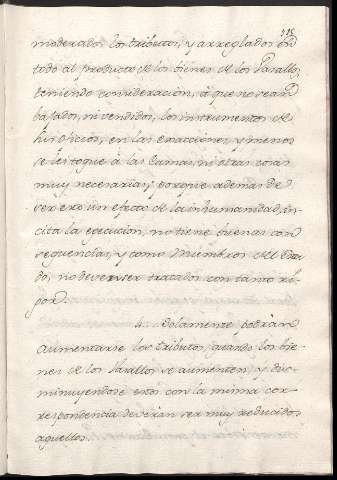 moderados los tributos, y arreglados en
todo al producto de los bienes de los Vasallos,
teniendo consideracion, à que no sean
ni vendidos, los instrumentos de
sus oficios, en las exacciones, y menos
se les toque à las Camas, ni otras cosas
muy necesarias, porque además de
ser eso un efecto de la inhumanidad, in-
cita la execucion, no tiene buenas con
sequencias, y como Miembros del Esta-
do, no deven ser tratados con tanto ri-
gor.
4. Solamente podràn
aumentarse los tributos, quando los bie-
nes de los Vasallos se aumenten, y dis-
minuyendose estos con la misma cor-
respondencia deveràn ser muy reducidos
aquellos.